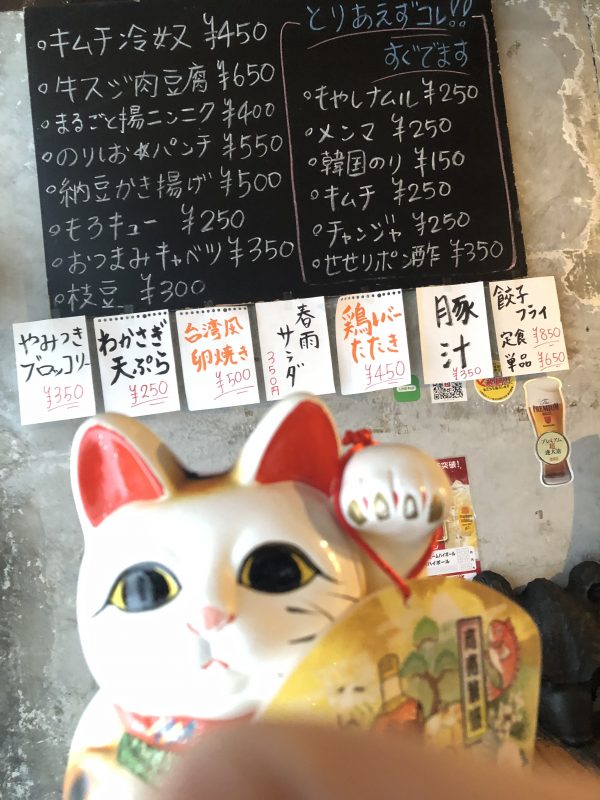 ○キムチ冷奴 ¥450
○牛スジ肉豆腐 ¥650
○まるごと揚ニンニク ¥400
○のりしお⋊パンチ ¥550
○納豆かき揚げ ¥500
○もろキュー ¥250
○おつまみキャベツ ¥350
○枝豆 ¥300
とりあえずコレ!!
すぐでます
○もやしナムル ¥250
○メンマ ¥250
○韓国のり ¥150
○キムチ ¥250
○チャンジャ ¥250
○せせりポン酢 ¥350
やみつき
ブロッコリー
¥350
わかさぎ
天ぷら
¥250
台湾風
卵焼き
¥500
春雨
サラダ
350円
鶏レバー
たたき
¥450
豚
汁
¥350
餃子
フライ
定食 ¥850
単品 ¥650
PREMIUM
プレミアム
超
達人店